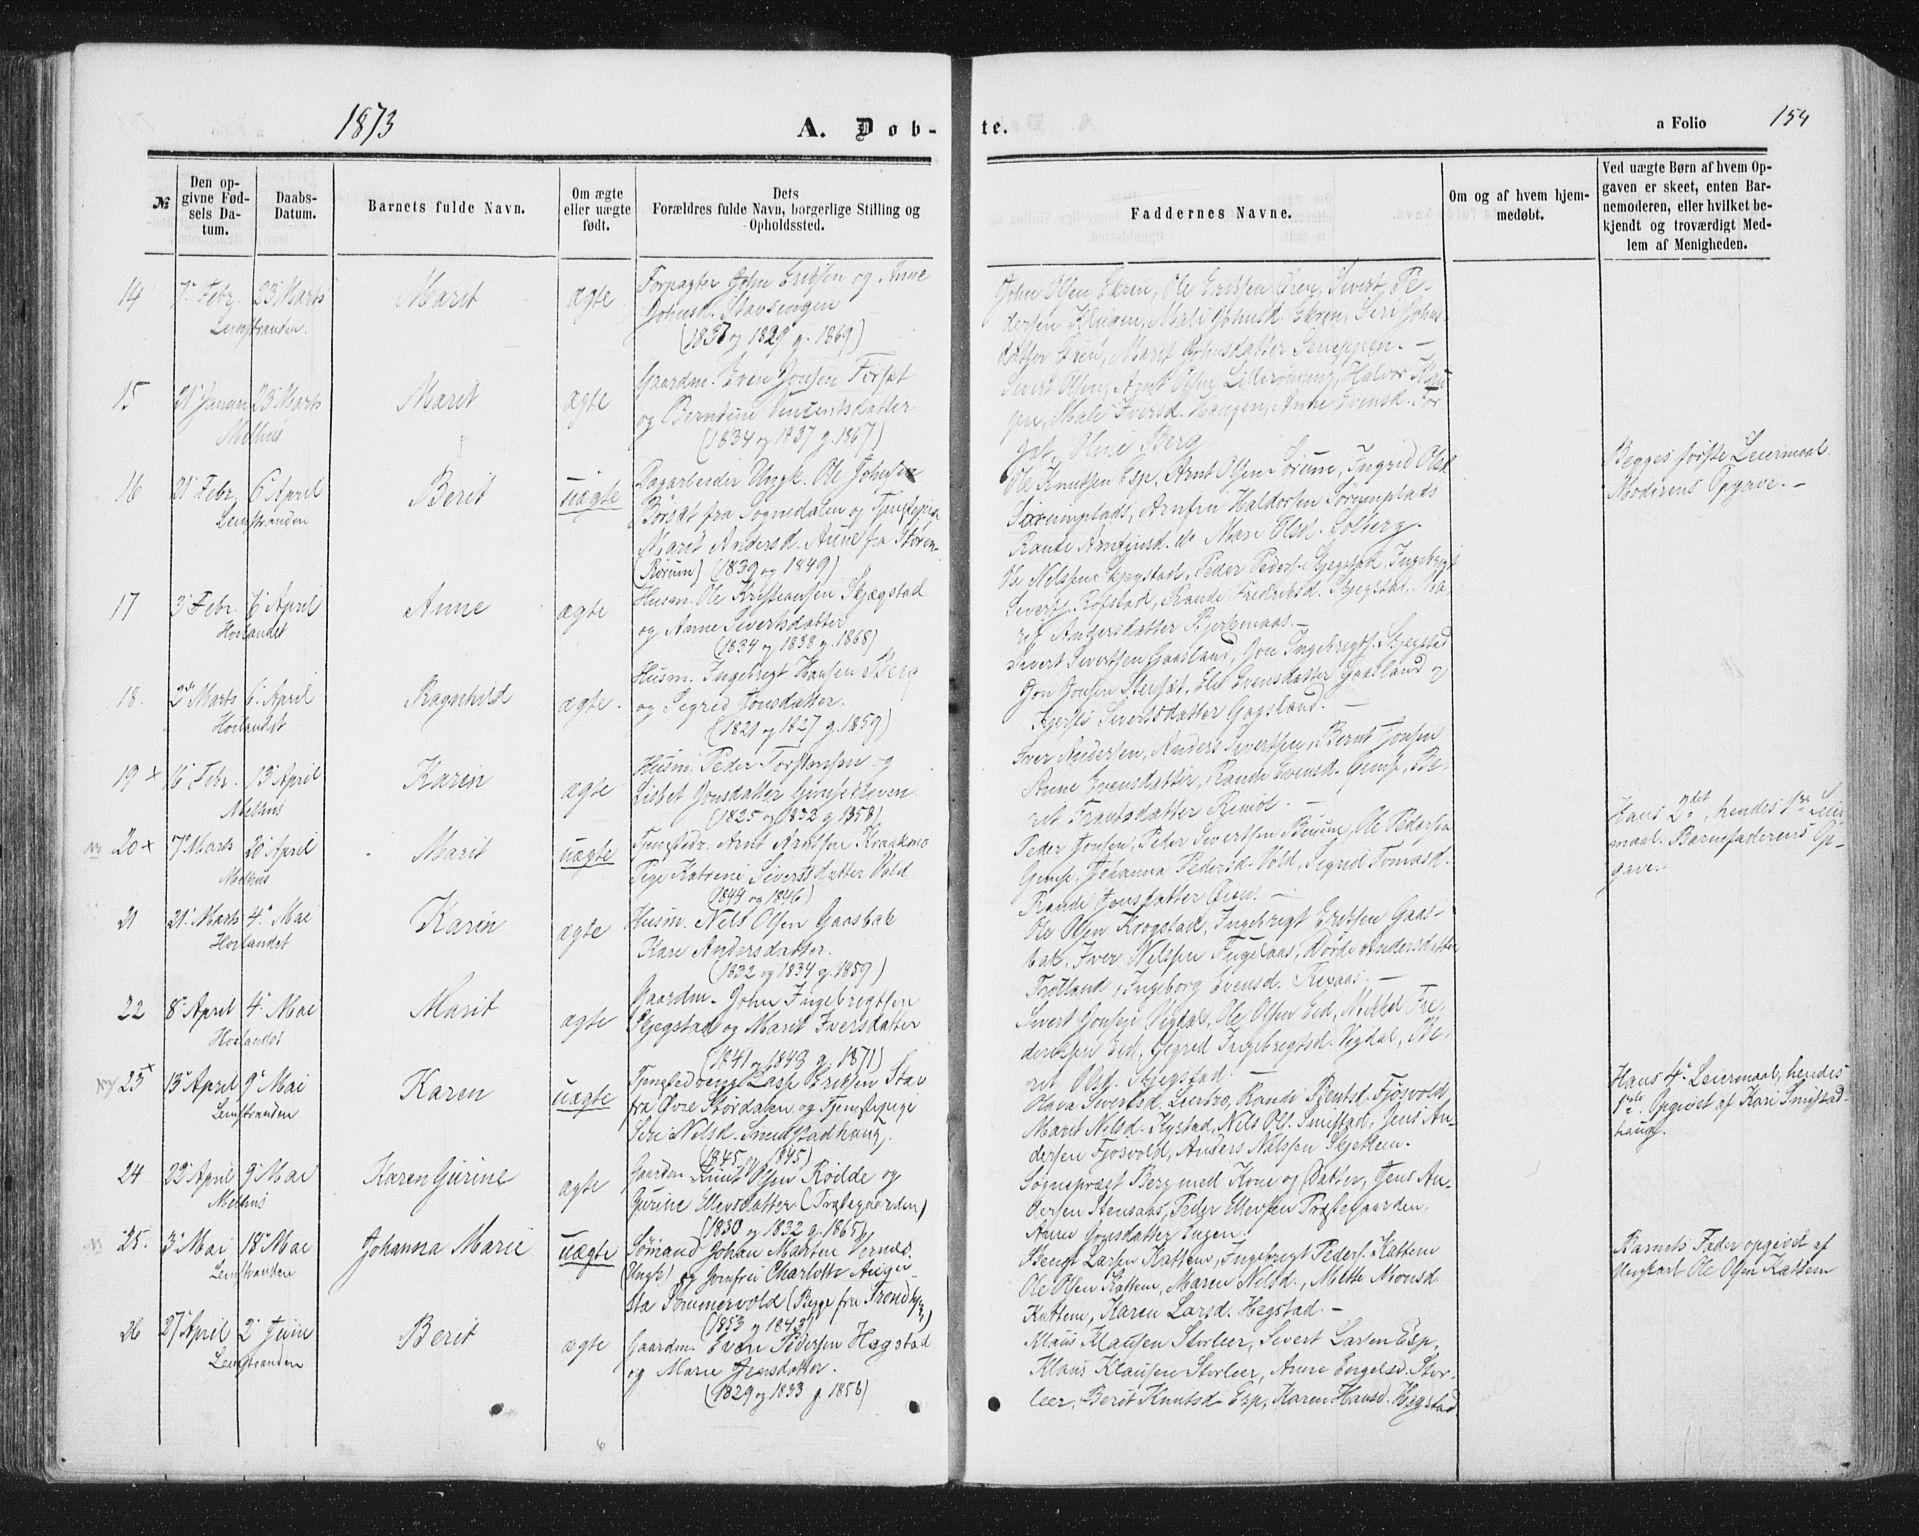 1873
A. Døb-
te.
a Folio
154
№
Den op-
givne Fød-
sels Da-
tum.
Daabs-
Datum.
Barnets fulde Navn.
Om ægte
eller uægte
født.
Dets
Forældres fulde Navn, borgerlige Stilling og
Opholdssted.
Faddernes Navne.
Om og af hvem hjem-
medøbt.
Ved uægte Børn af hvem Op-
gaven er skeet, enten Bar-
nemoderen, eller hvilket be-
kjendt og troværdigt Med-
lem af Menigheden.
14 Febr. 23 Marts Marit ægte Forpagter John Eriksen og Anne
Lenstranden
Johnsd. Stavsengen
(1837 og 1829 g. 1869)
John Olsen Ekren, Ole Eriksen Øren, Sivert Pe-
dersen Klungen, Mali Johnsd. Ekren, Siri Johns-
datter Øren, Marit Johnsdatter
15 21 Januar 23 Marts Marit ægte Gaardm. Even Jonsen Forsæt
Melhus
og Berntine Vincentsdatter
(1834 og 1837 g. 1867)
Sivert Olsen, Arnt Olsen Halvor
Mali Iversd. Haugen, Anne Evensd. For-
sæt, Oline Berg
16 21 Febr. 6 April Berit uægte Dagarbeider Ungk. Ole Johnsen
Lenstranden
Børsæt fra Sognedalen og Tjenestepige
Marit Andersd. Aune fra Støren
(Rørum) (1839 og 1849)
Ole Knutsen Esp, Arnt Olsen Sørum, Ingrid Olsd.
Sørumplads, Arnfin Haldorsen Sørumplads
Rande Arnfinsd. do Mari Olsd. Solberg.
Begges første Leiermaal.
Moderens Opgave. -
17 3 Febr. 6 April Anne ægte Husm. Ole Kristiansen Skjægstad
Horlandet
og Anne Sivertsdatter
(1834 og 1838 g. 1868)
Ole Nilsen Skjegstad, Peder Peders. Skjegstad, Ingebrigt
Siverts. Rofstad, Rande Frederiksd. Skjegstad, Ma-
rit Andersdatter Bjerkmaas. -
18. 2 Marts 6 April Ragnhild ægte. Husm. Ingebrigt Hansen Berg
Horlandet
og Sigrid Jonsdatter.
(1821 og 1827 g. 1859)
Sivert Sivertsen Gaasland, Jon Ingebrigts. Skjegstad
Jon Jonsen Elie Evensdatter Gaasland og
Sivertsdatter Gaasland. -
19 x 16 Febr. 13 April Karen ægte Husm. Peder Torstensen og
Melhus
Lisbet Jonsdatter Gimsekleven
(1825 og 1832 g. 1858)
Iver Andersen, Anders Sivertsen, Bernt Jonsen
Anne Evensdatter, Rande Evensd. Gimse, Be-
rit Frantsdatter Rimol -
20 x 7 Marts 20 April Marit uægte Tjenestedr. Arnt Arntsen Kraakmo
Melhus
Pige Katrine Sivertsdatter Vold
(1844 og 1846)
Peder Jonsen, Peder Sivertsen Ole Pedersen
Gimse, Johanna Pedersd. Vold, Sigrid Tomasd.
Rande Jensdatter Øien. -
Hans 2det, hendes 1ste Leier-
maal. Barnefaderens Op-
gave.
21 21 Marts 4 Mai Karen ægte Husm. Nils Olsen Gaasbak
Horlandet
Kari Andersdatter.
(1832 og 1834 g. 1859)
Ole Olsen Krogstad, Ingebrigt Eriksen Gaas-
bak, Iver Nilsen Fuglaas, Dordi Andersdatter
Trotland, Ingeborg Evensd.
22 8 April 4 Mai Marit ægte Gaardm. John Ingebrigtsen
Horlandet
Skjegstad og Marit Iversdatter
(1841 og 1843 g. 1871)
Sivert Jonsen Vigdal, Ole Olsen Eid, Mikkel Fre-
deriksen Eid, Sigrid Ingebrigtsd. Vigdal, Be-
rit Olsd. Skjegstad. -
23 x 13 April 9 Mai Karen uægte Tjenestedreng Lasse Eriksen Stav
Lenstranden
fra Øvre Størdalen og Tjenestepige
Siri Nilsd. Smedstadhaug.
(1845 og 1845)
Olava Sivertsd. Leerbro, Randi Berntsd. Fjøsvold,
Marit Nilsd. Kystad, Nils Ols. Smistad, Jens An-
dersen Fjøsvold, Anders Nilsen Skjettem.
Hans 4de Leiermaal, hendes
1ste. Opgivet af Kari Smistad-
haug.
24 22 April 9 Mai Karen Gurine ægte Gaardm. Knut Olsen Rødde og
Melhus
Gurine Ellevsdatter (Præstegaarden)
(1830 og 1832 g. 1865)
Sognepræst Berg med Kone og Datter, Jens An-
dersen Stensaas, Peder Ellevsen Præstegaarden.
Anne Jonsdatter Ingen.
25. 3 Mai 18 Mai Johanna Marie uægte Sømand Johan Martin Vernes
Lenstranden
(Ungk) og Jomfru Charlotte Augu-
sta Sommervold (Begge fra Trondhjem)
(1853 og 1843)
Bengt Larsen Kattem, Ingebrigt Peders. Kattem
Ole Olsen Kattem, Maren Nilsd., Mette Monsd
Kattem, Karen Larsd. Hegstad. -
Barnets Fader opgivet af
Ungkarl Ole Olsen Kattem
26 27 April 2 Juni Berit ægte Gaardm. Even Pedersen Hægstad
Lenstranden
og Marie Jensdatter.
(1829 og 1833 g. 1856)
Klaus Klausen Storleer, Sivert Larsen Esp,
Klaus Klausen Storleer, Anne Engelsd. Stor-
leer, Berit Knutsd. Esp, Karen Hansd. Hegstad